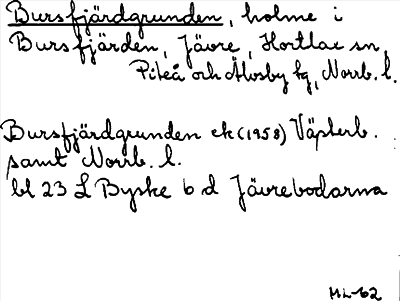 Bursfjärdgrunden, holme i
Bursfjärden, Jävre, Hortlax sn,
Piteå och Älvsby tg, Norrb. l.
Bursfjärdgrunden ek (1958) Västerb.
samt Norrb. l.
bl 23 L Byske b d Jävrebodarna
ML-62